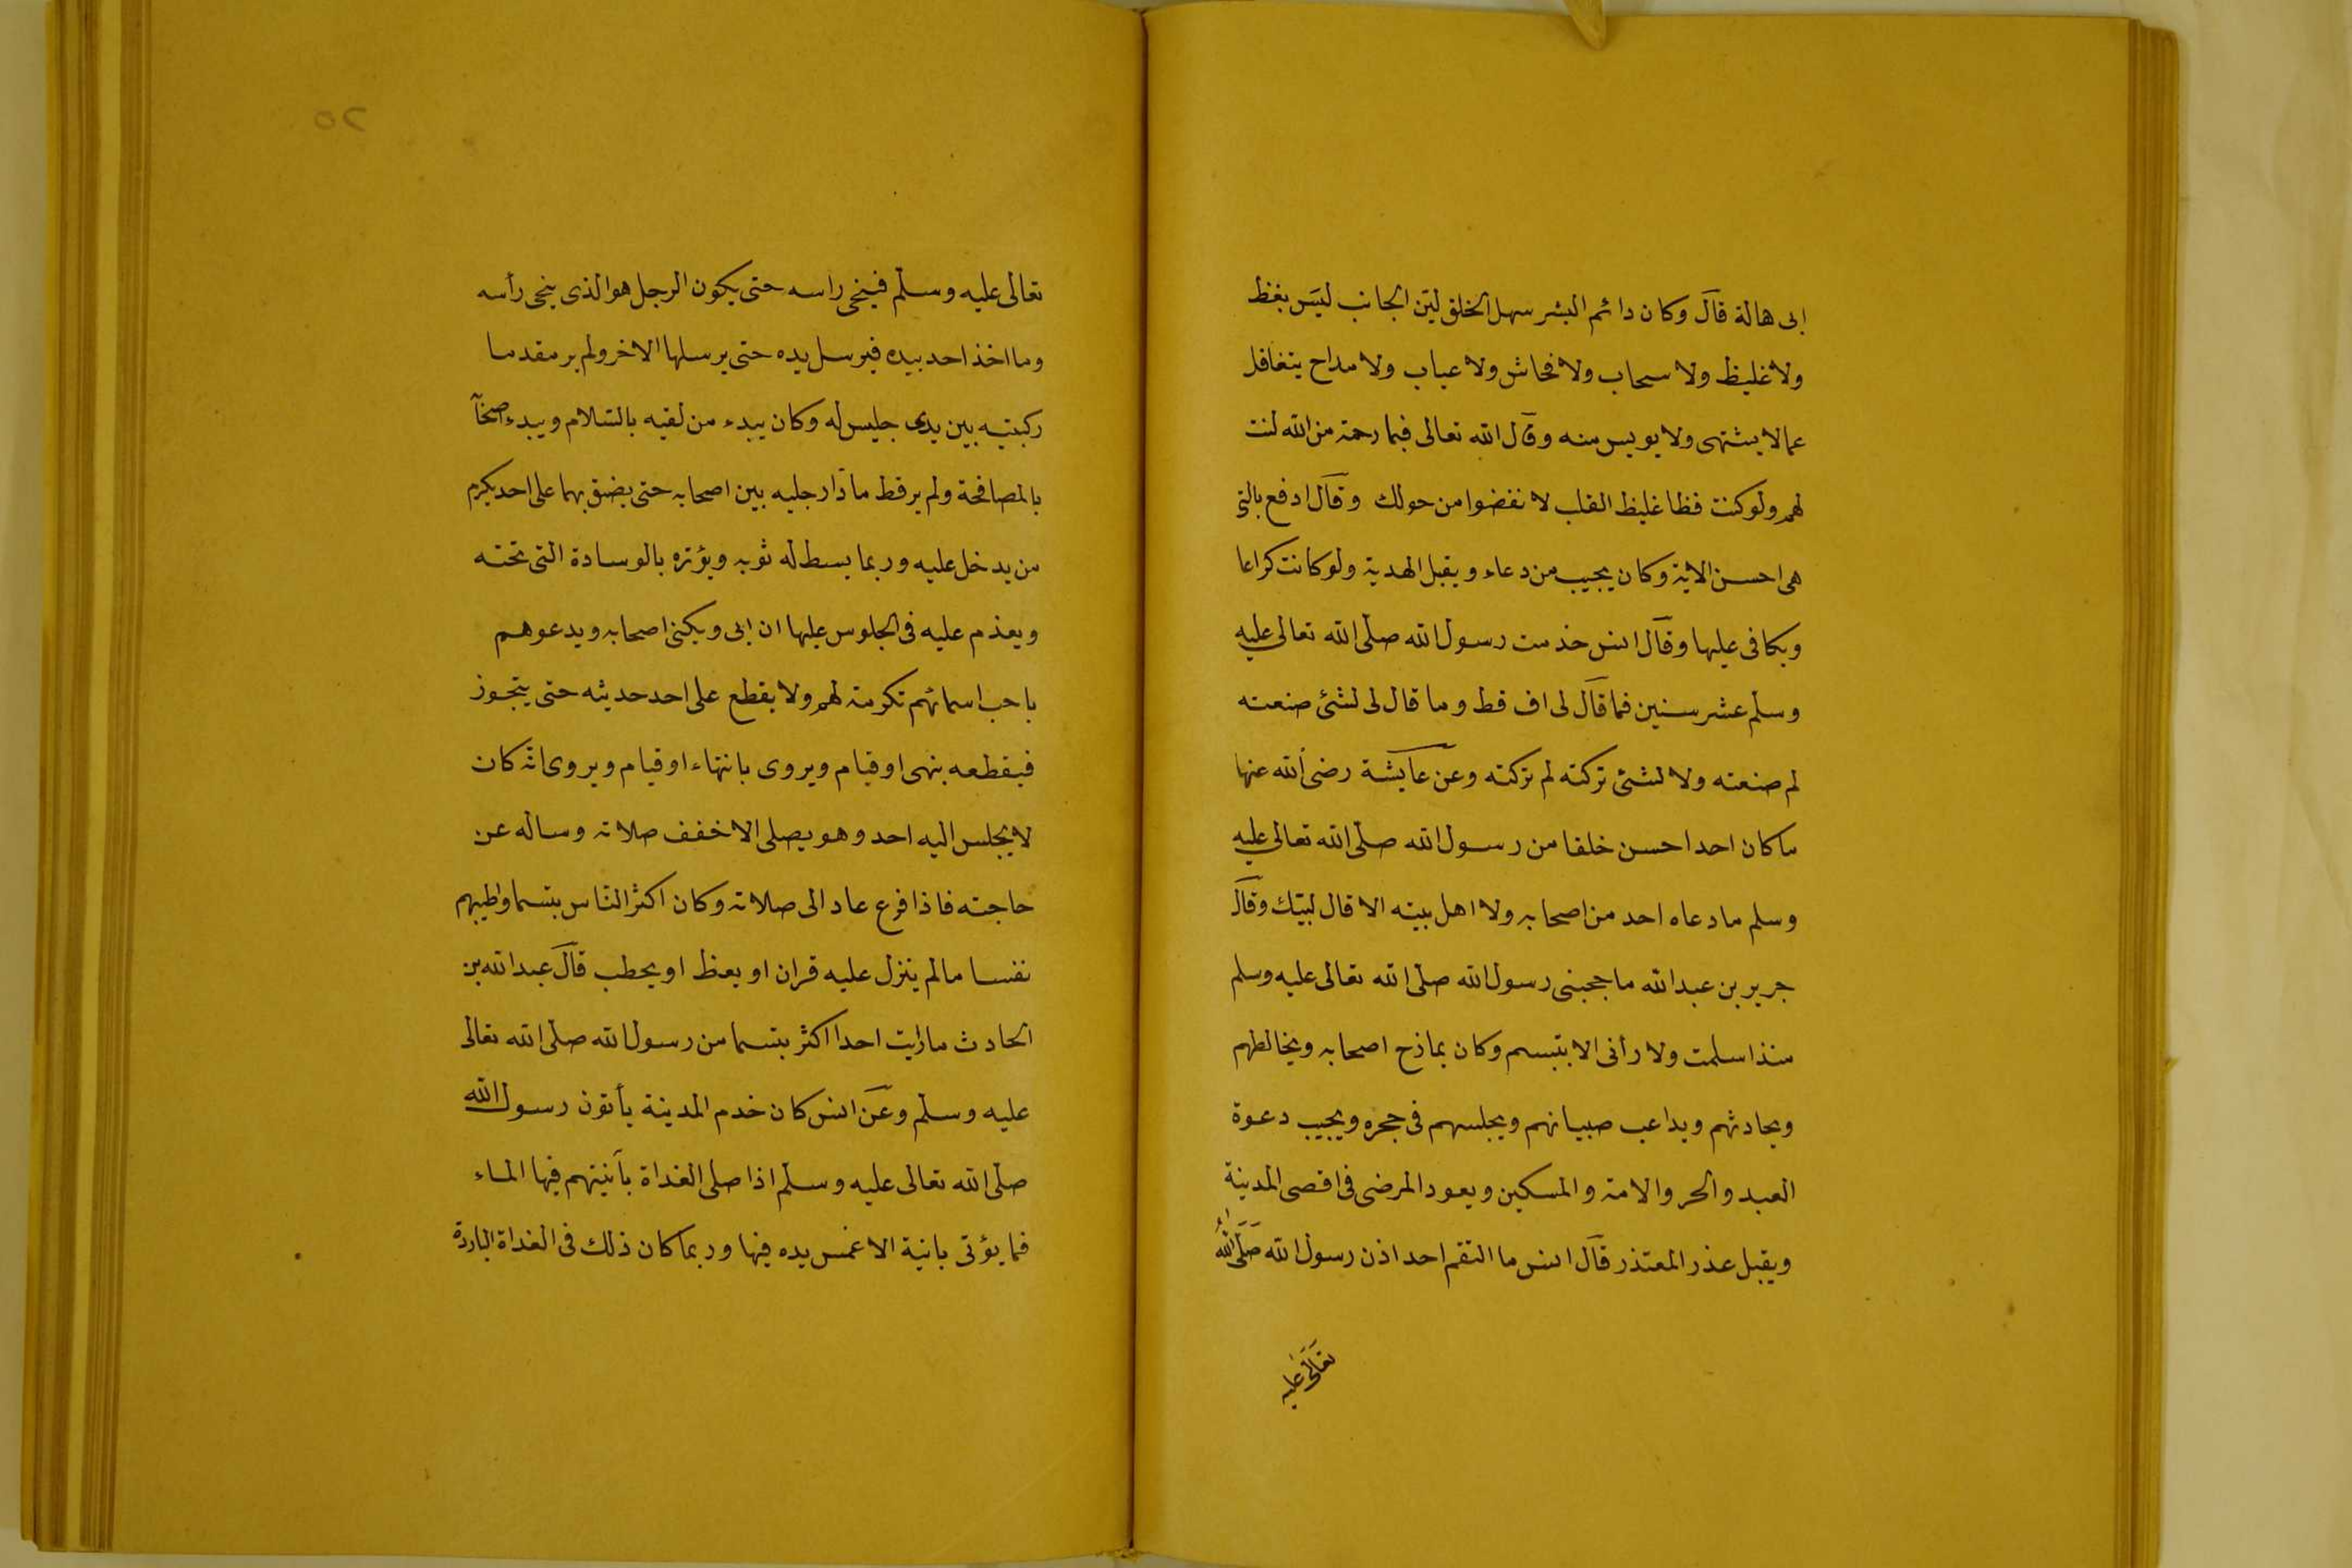 ابى هالة قال وكان دائم البشر سهل الخلق لين الجانب ليس بغظ
ولا غليظ ولا سحاب ولا فحاش ولا عياب ولا مداح يتغافل
عما لا يشتهى ولا يويس منه وقال الله تعالى فبما رحمة من الله لنت
لهم ولو كنت فظا غليظ القلب لا نفضوا من حولك وقال ادفع بالتى
هى احسن الاية وكان يجيب من دعاء ويقبل الهدية ولو كانت كراعا
ويكافى عليها وقال انس خدمت رسول الله صلى الله تعالى عليه
وسلم عشر سنين فما قال لى اف قط وما قال لى لشئ صنعته
لم صنعته ولا لشئ تركته لم تركته وعن عايشة رضى الله عنها
ما كان احد احسن خلقا من رسول الله صلى الله تعالى عليه
وسلم ما دعاه احد من اصحابه ولا اهل بيته الا قال لبيك وقال
جرير بن عبد الله ما حجبنى رسول الله صلى الله تعالى عليه وسلم
منذ اسلمت ولا رأنى الا بتبسم وكان يمازح اصحابه ويخالطهم
ويحادثهم ويداعب صبيانهم ويجلسهم فى حجره ويجيب دعوة
العبد والحر والامة والمسكين ويعود المرضى فى اقصى المدينة
ويقبل عذر المعتذر قال انس ما التقم احد اذن رسول الله صلى الله
تعالى عليه
٢٥
تعالى عليه وسلم فينحى راسه حتى يكون الرجل هو الذى ينحى رأسه
وما اخذ احد بيده فيرسل يده حتى يرسلها الاخر ولم ير مقدما
ركبتيه بين يدى جليس له وكان يبدء من لقيه بالسلام ويبدء اصحآ
بالمصافحة ولم ير قط مادا رجليه بين اصحابه حتى يضيق بهما على احد يكرم
من يدخل عليه وربما بسط له ثوبه ويؤثره بالوسادة التى تحته
ويعذم عليه فى الجلوس عليها ان ابى ويكنى اصحابه ويدعوهم
باحب اسمائهم تكرمة لهم ولا يقطع على احد حديثه حتى يتجوز
فيقطعه بنهى او قيام ويروى بانتهاء او قيام ويروى انه كان
لا يجلس اليه احد وهو يصلى الا خفف صلاته وساله عن
حاجته فاذا فرع عاد الى صلاته وكان اكثر الناس بتسما واطيبهم
نفسا مالم ينزل عليه قران او يعظ او يحطب قال عبد الله بن
الحادث ما رايت احدا اكثر بتسما من رسول الله صلى الله تعالى
عليه وسلم وعن انس كان خدم المدينة يأتون رسول الله
صلى الله تعالى عليه وسلم اذا صلى الغداة بآنيتهم فيها الماء
فما يؤتى بانية الا غمس يده فيها وربما كان ذلك فى الغداة الباردة